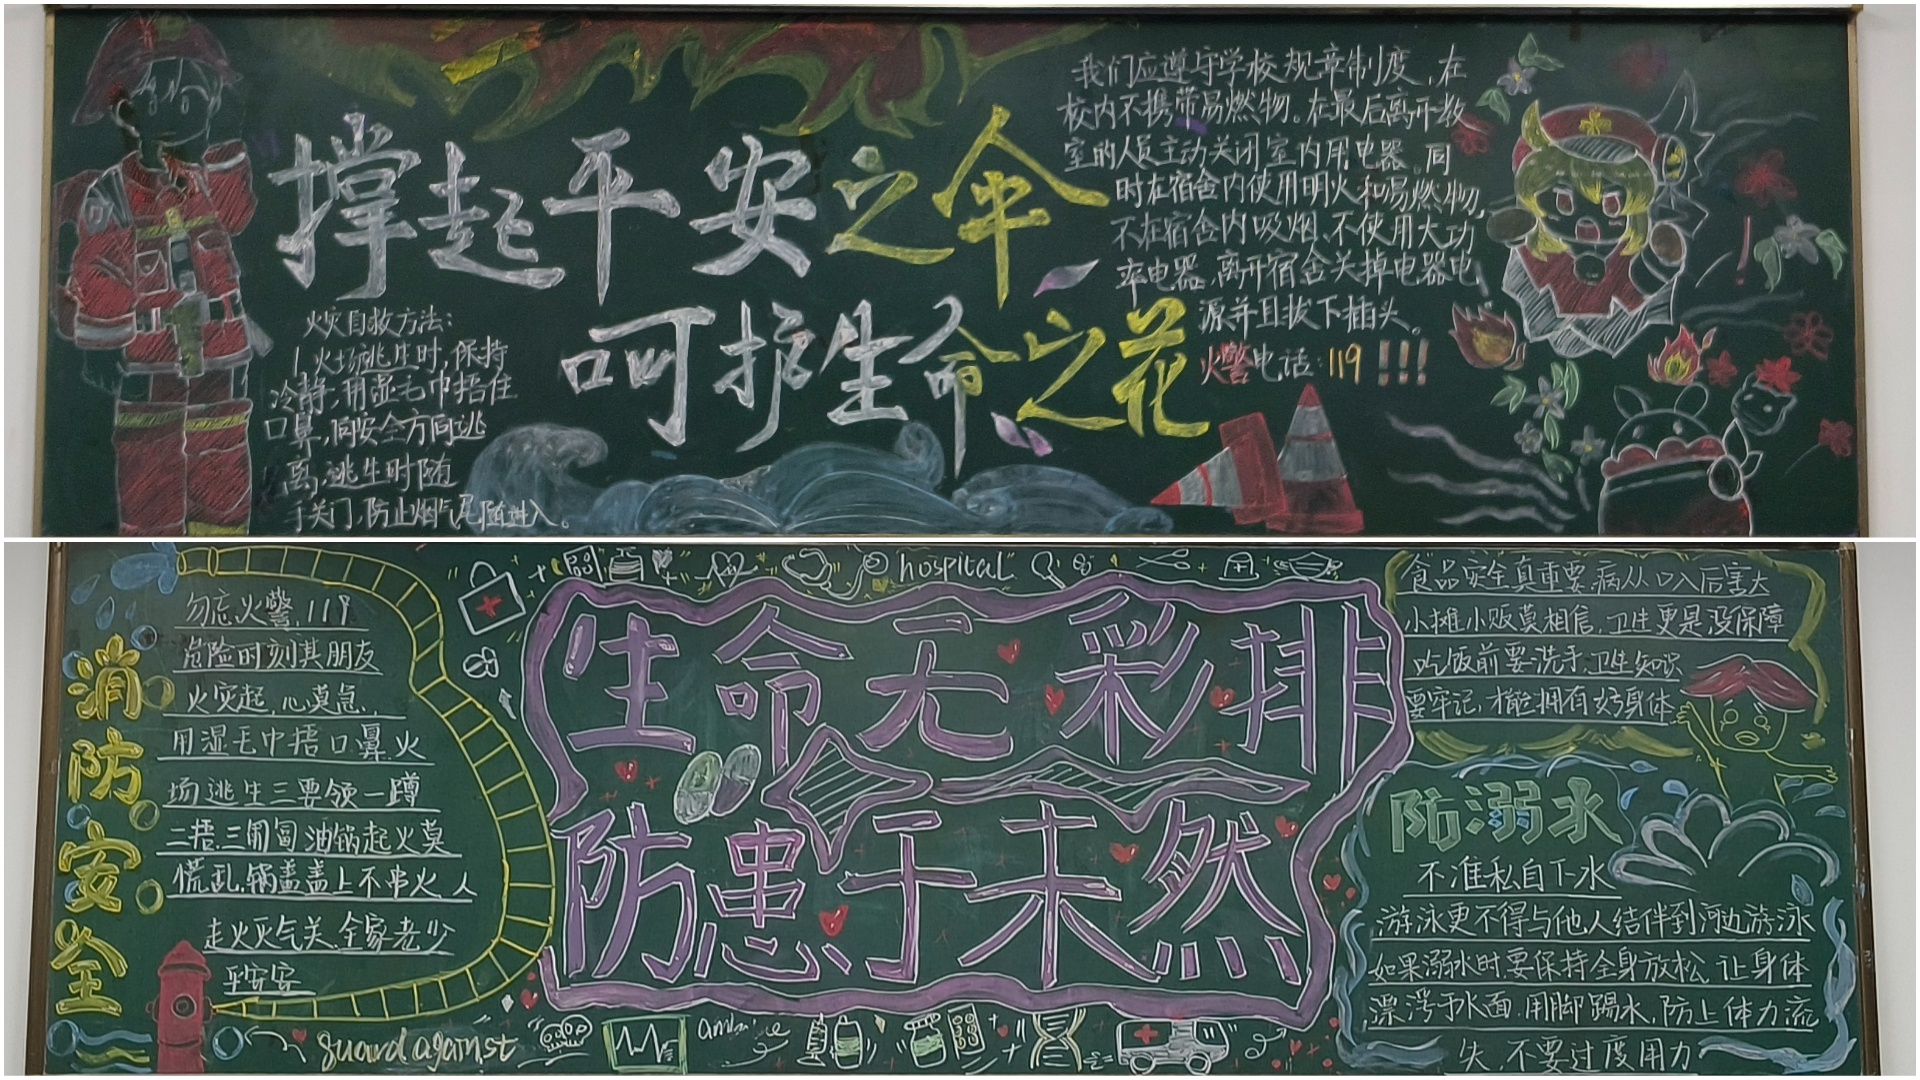 撑起平安之伞
呵护生命之花
火灾自救方法:
1,火场逃生时,保持
冷静,用湿毛巾捂住
口鼻,向安全方向逃
离,逃生时随
手关门,防止烟气尾随进入。
我们应遵守学校规章制度,在
校内不携带易燃物。在最后离开教
室的人员主动关闭室内用电器。同
时在宿舍内使用明火和易燃物,
不在宿舍内吸烟、不使用大功
率电器,离开宿舍关掉电器电
源并且拔下插头。
火警电话:119!!!
消防安全
勿忘火警,119
危险时刻其朋友
火灾起,心莫点,
用湿毛巾捂口鼻,火
场逃生三要领一蹲
二捂三闭冒油锅起火莫
慌乱,锅盖盖上不串火,人
走火灭气关,全家老少
平安安
guard against
hospital
生命无彩排
防患于未然
食品安全真重要,病从口入后害大
小摊小贩莫相信,卫生更是没保障
吃饭前要洗手,卫生知识
要牢记,才能拥有好身体
防溺水
不准私自下水
游泳更不得与他人结伴到河边游泳
如果溺水时要保持全身放松,让身体
漂浮于水面,用脚踢水,防止体力流
失,不要过度用力